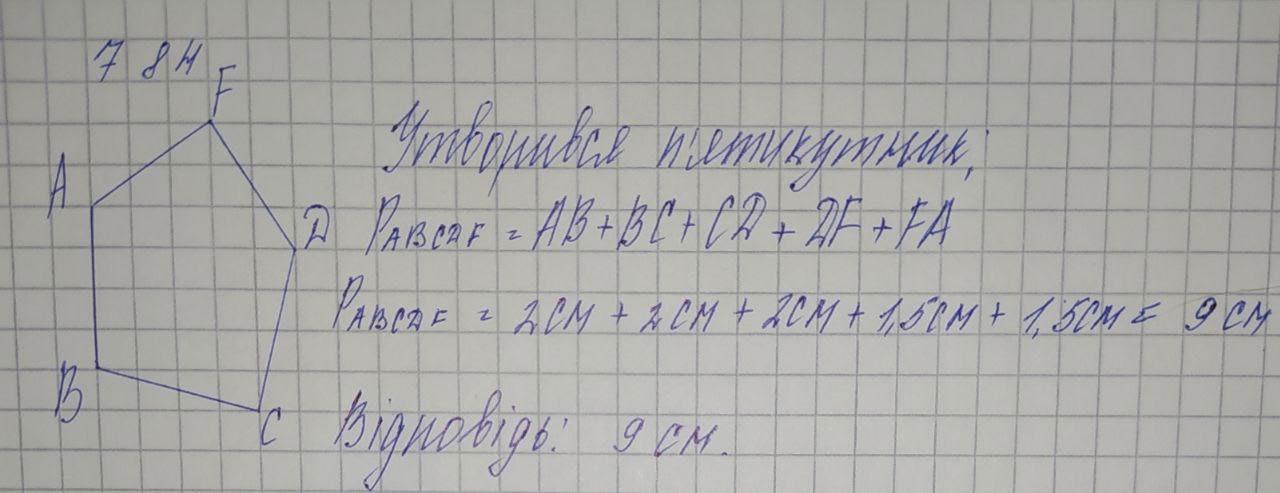 784
F
A
Утворився п'ятикутник,
D
P ABCDF = AB + BC + CD + DF + FA
P ABCDF = 2см + 2см + 2см + 1,5см + 1,5см = 9см
B
C
Відповідь: 9 см.